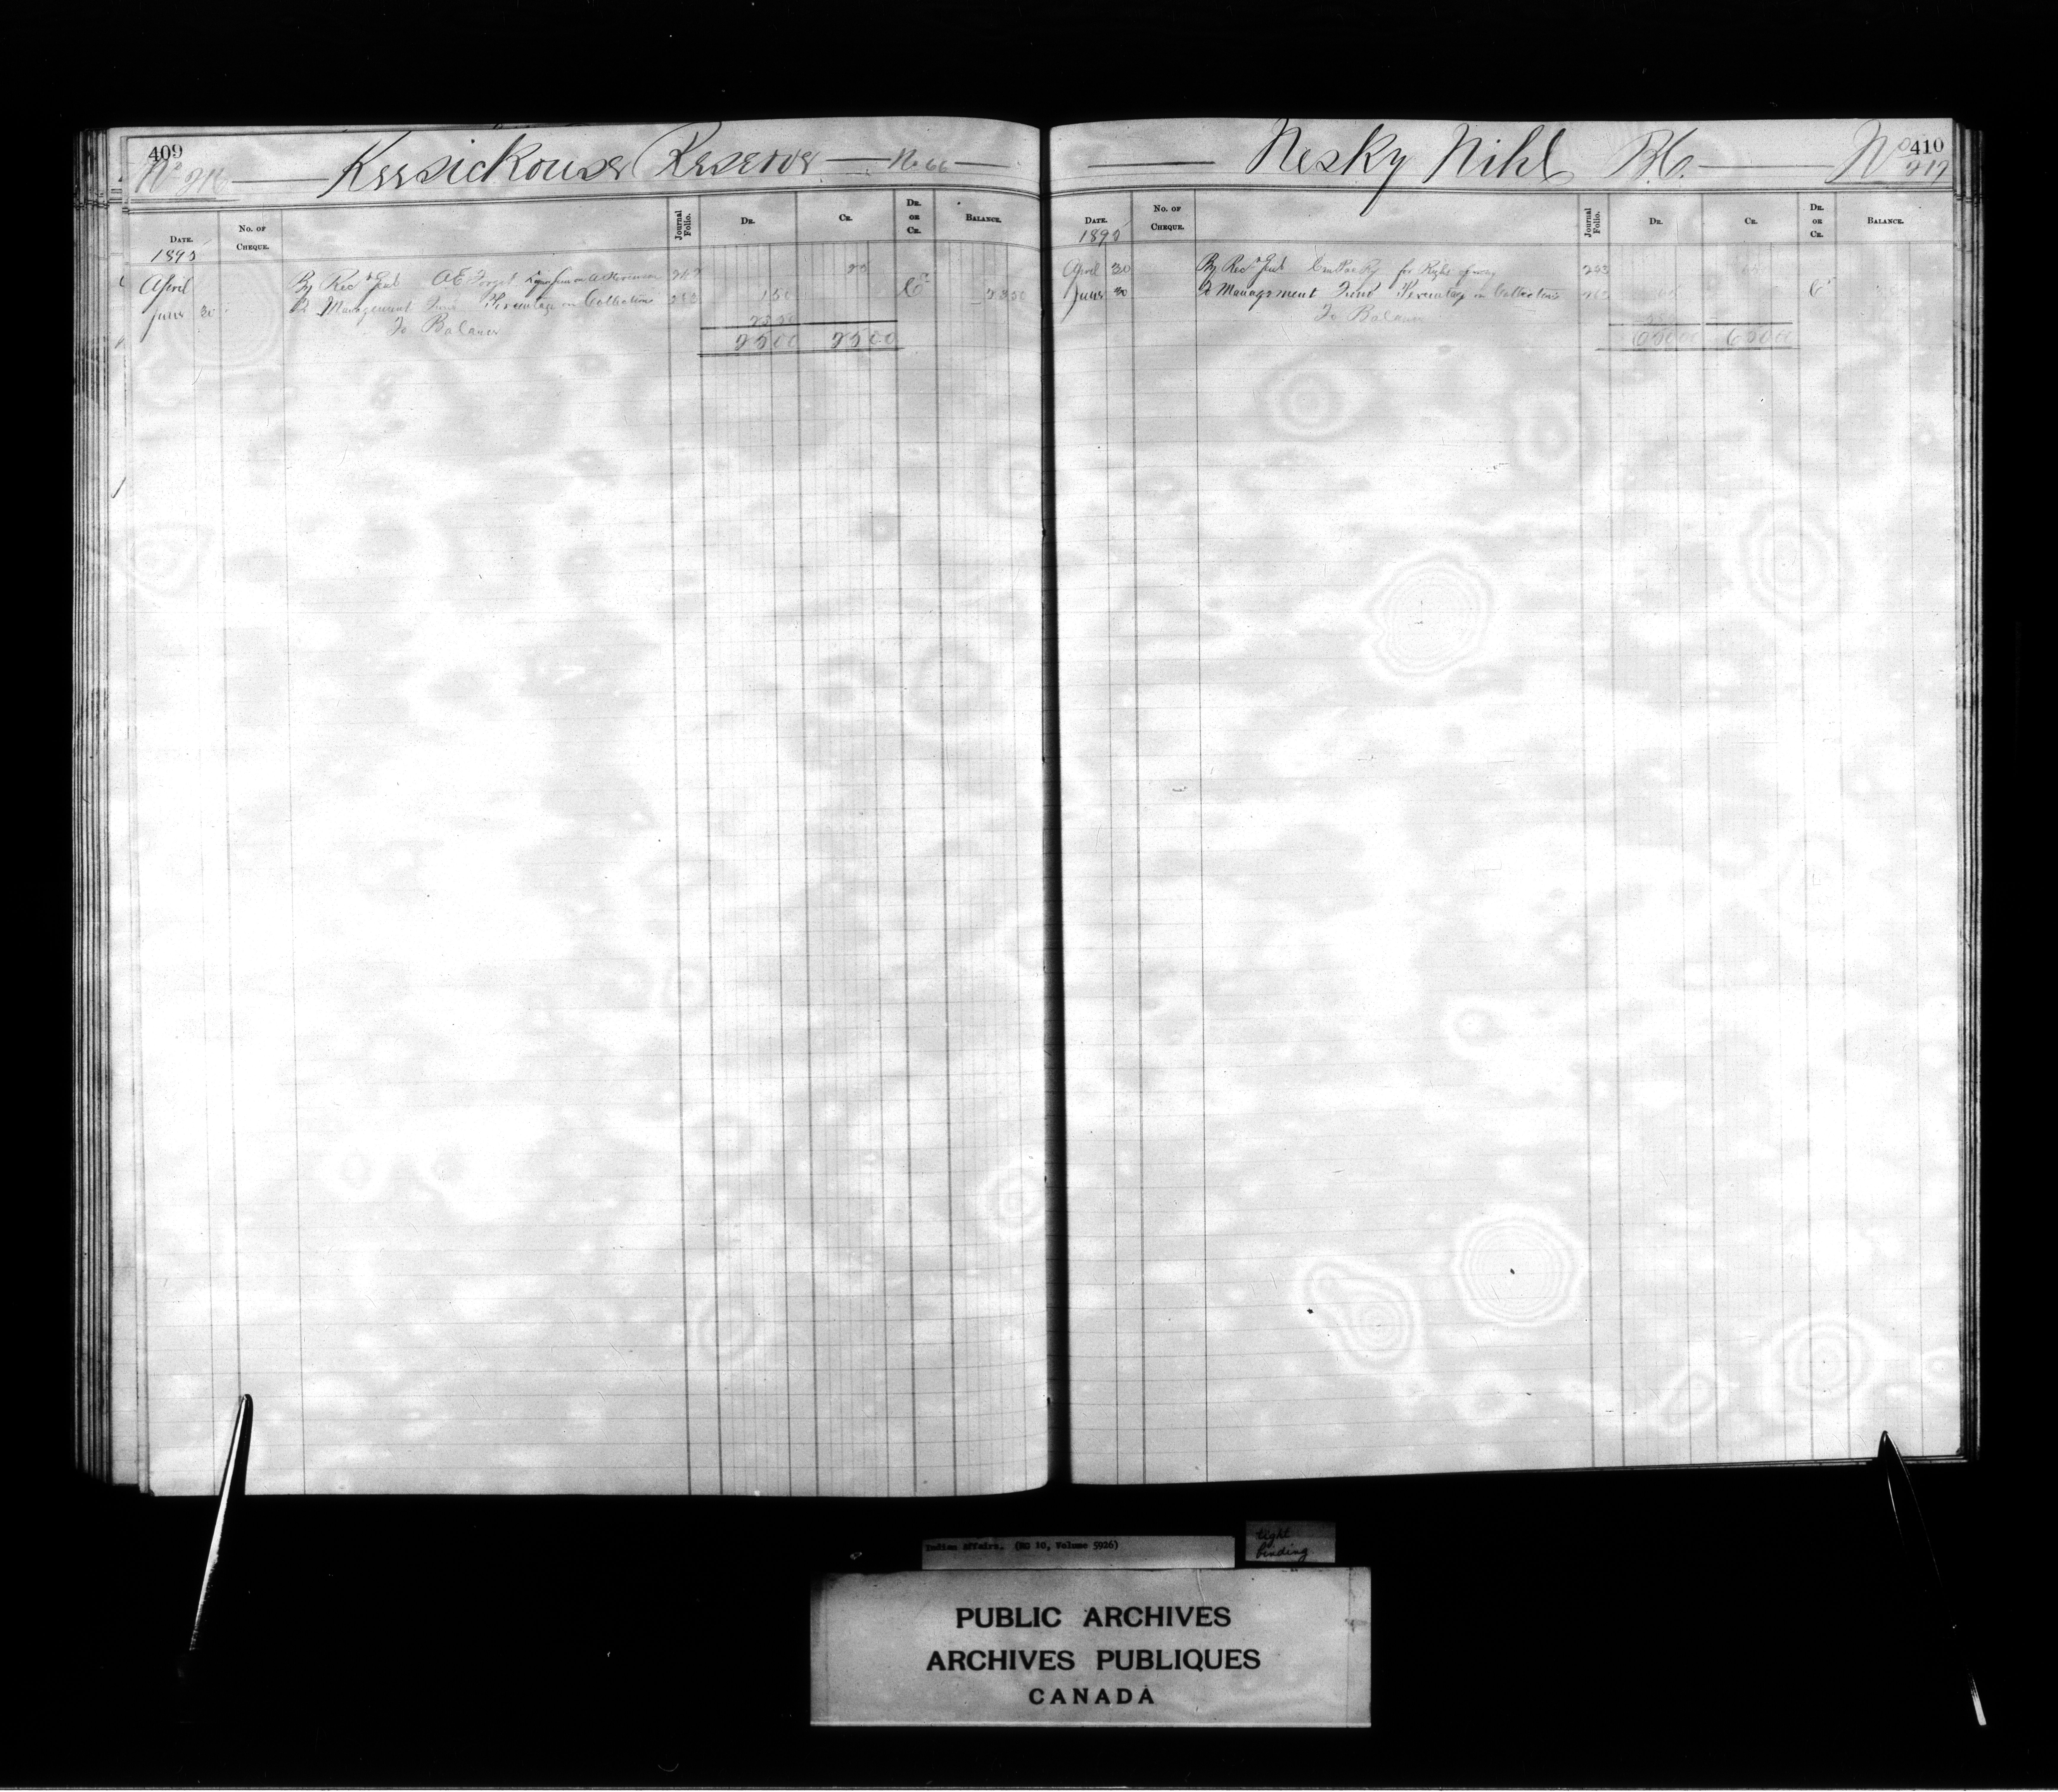 409
Nº 216 Keesickouse Reserve No 66
DATE. No. OF CHEQUE. Journal Folio. DR. CR. DR. OR CR. BALANCE.
1895
April By Rec Genl A E Forget 25
June 30 To Management Fund Percentage on Collections 150 Cr 2350
To Balance 2350
2500 2500
410
Nesky Nihl B.C. Nº 217
DATE. No. OF CHEQUE. Journal Folio. DR. CR. DR. OR CR. BALANCE.
1895
April 30 By Rec Genl Can Pac Ry for Right of way 253 65
June 30 To Management Fund Percentage on Collections Cr
To Balance
6500 6500
Indian Affairs. (RG 10, Volume 5926)
tight binding
PUBLIC ARCHIVES
ARCHIVES PUBLIQUES
CANADA